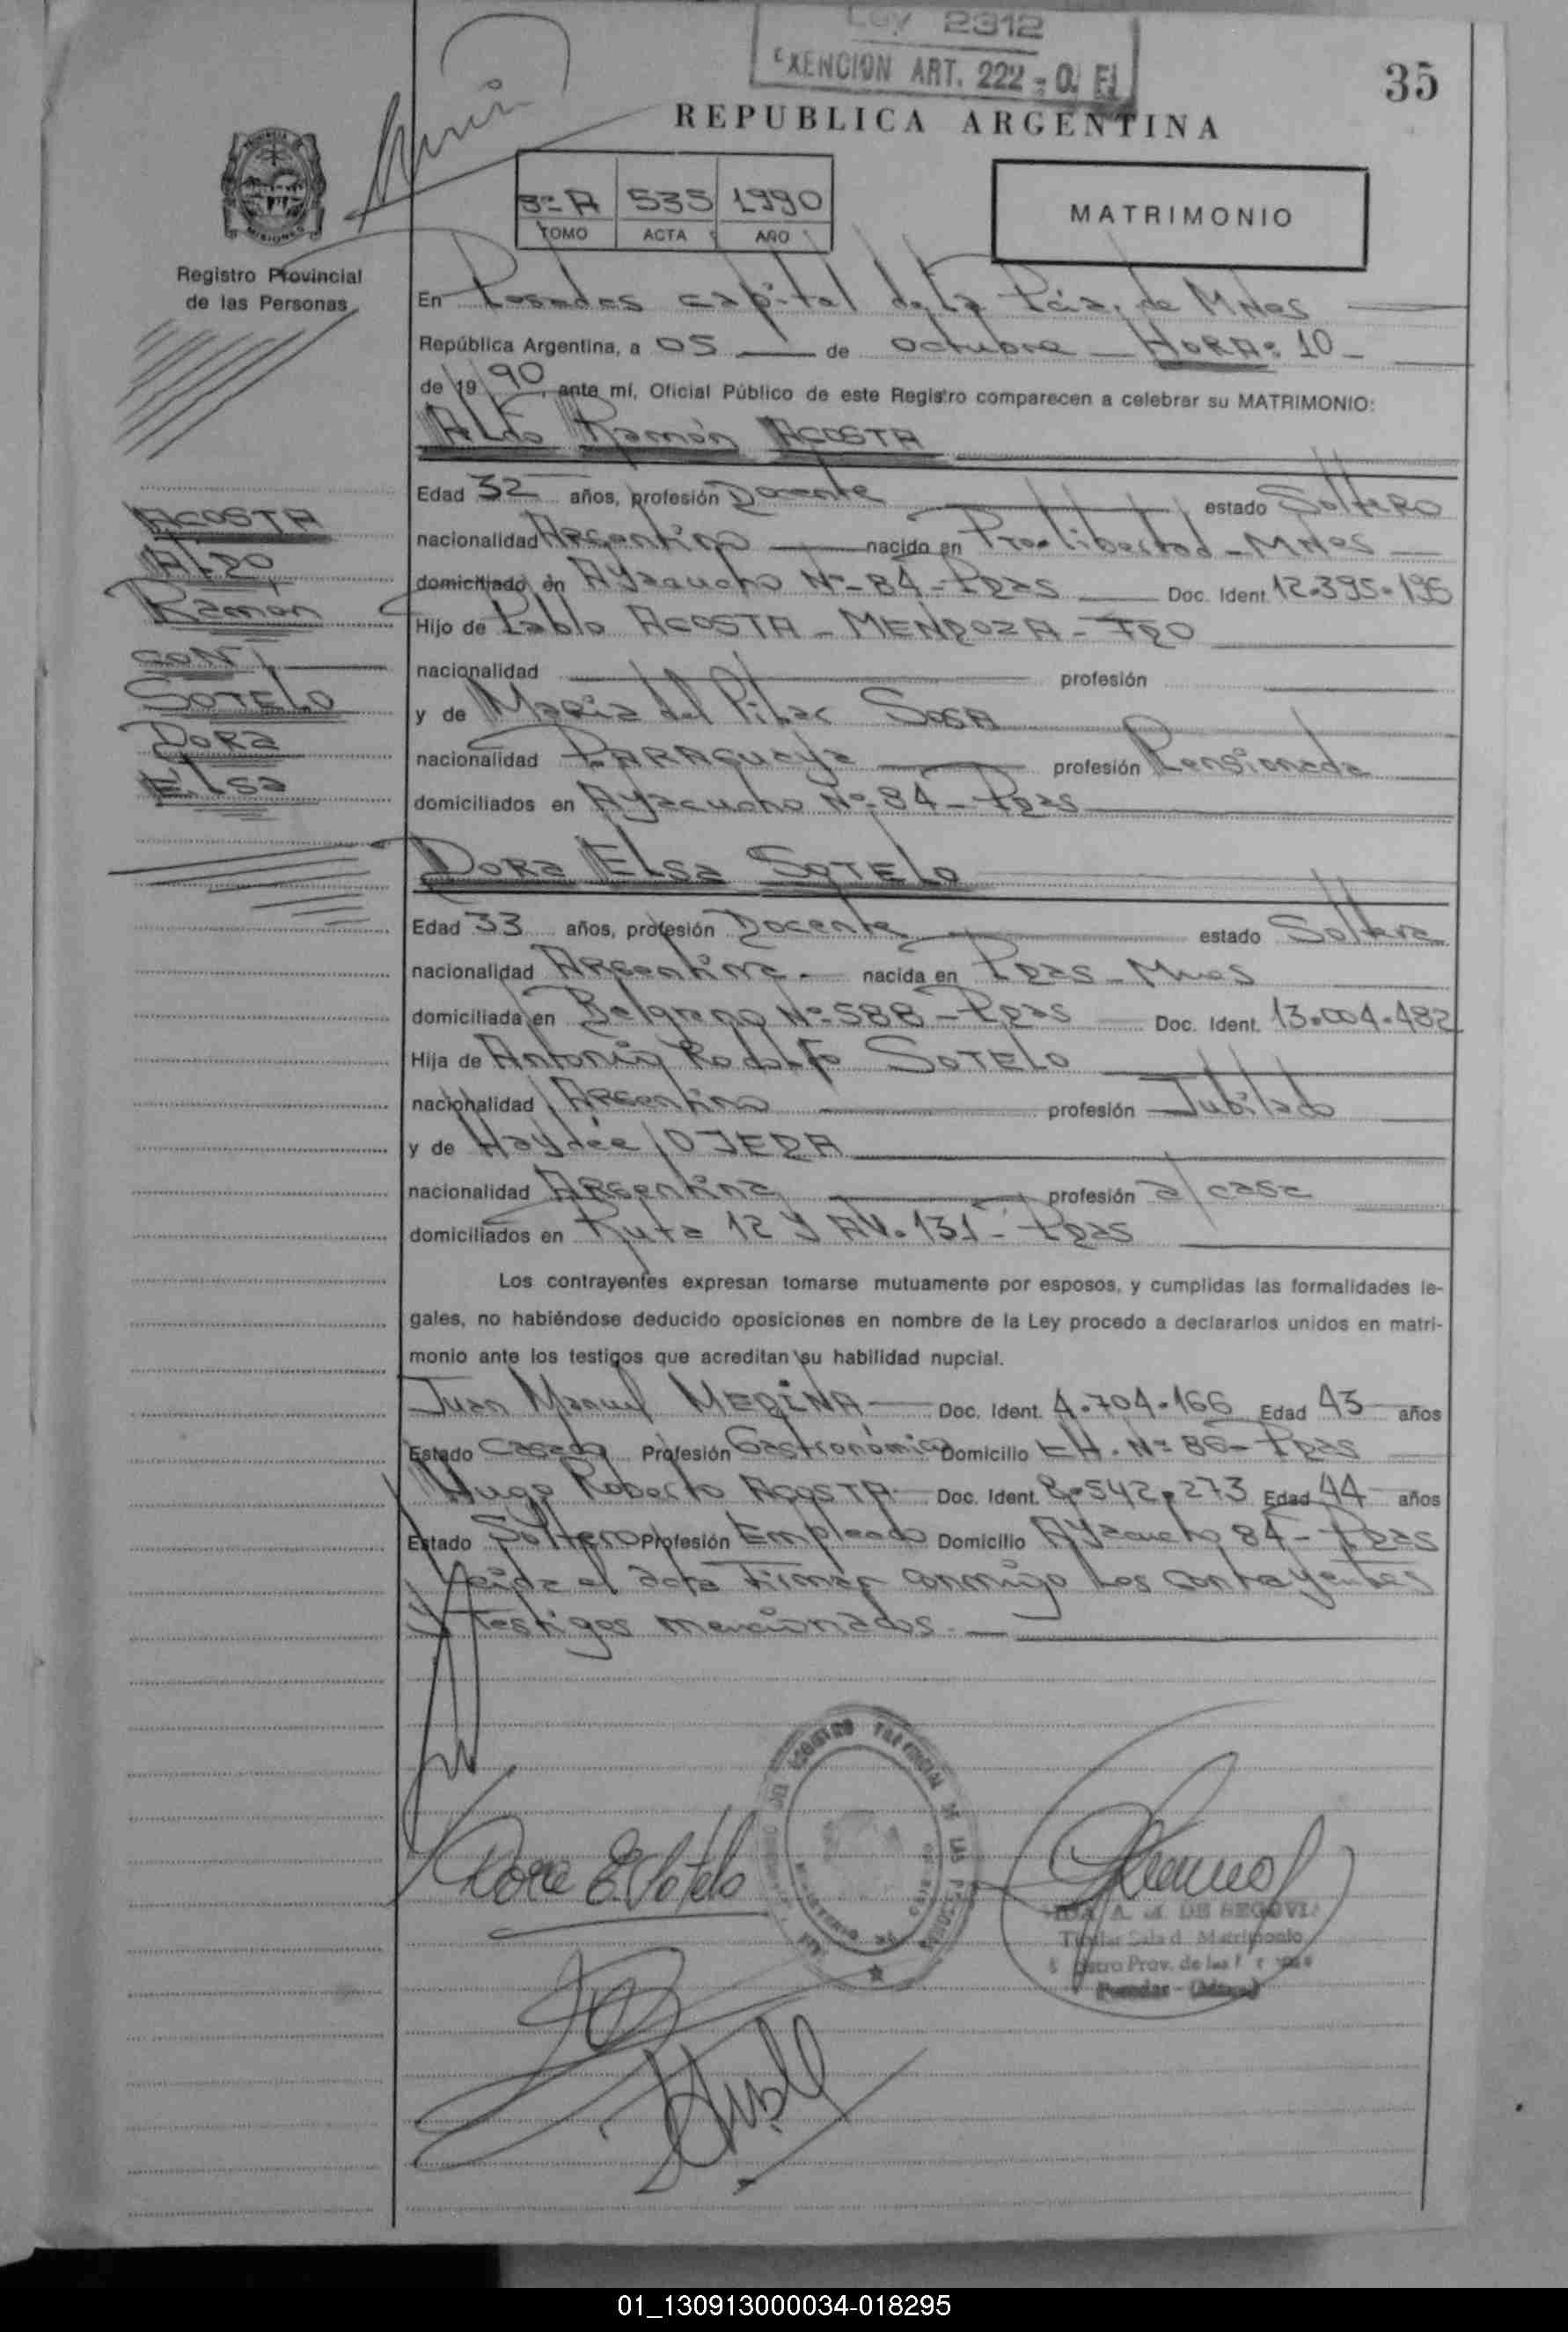 Ley 2312
EXENCION ART. 222 - O. F.
35
REPUBLICA ARGENTINA
3º A 535 1990
TOMO ACTA AÑO
MATRIMONIO
MISIONES
Registro Provincial
de las Personas
En Posadas capital de la Pcia. de Mnes
República Argentina, a 05 de octubre HORA: 10
de 1990, ante mí, Oficial Público de este Registro comparecen a celebrar su MATRIMONIO:
Aldo Ramón ACOSTA
Edad 32 años, profesión Docente estado Soltero
nacionalidad Argentino nacido en Ptoo Libertad - Mnes
domiciliado en Ayacucho Nº 84 - Pdas Doc. Ident. 12.395.195
Hijo de Pablo ACOSTA - MENDOZA - FDO
nacionalidad profesión
y de María del Pilar SOSA
nacionalidad PARAGUAYA profesión Pensionada
domiciliados en Ayacucho Nº 84 - Pdas
ACOSTA
ALDO
Ramón
CON
SOTELO
DORA
ELSA
DORA ELSA SOTELO
Edad 33 años, profesión Docente estado Soltera
nacionalidad Argentina nacida en Pdas - Mnes
domiciliada en Belgrano Nº 588 - Pdas Doc. Ident. 13.004.482
Hija de Antonio Rodolfo SOTELO
nacionalidad Argentino profesión Jubilado
y de Haydée OJEDA
nacionalidad Argentina profesión a/casa
domiciliados en Ruta 12 y AV. 131 - Pdas
Los contrayentes expresan tomarse mutuamente por esposos, y cumplidas las formalidades le-
gales, no habiéndose deducido oposiciones en nombre de la Ley procedo a declararlos unidos en matri-
monio ante los testigos que acreditan su habilidad nupcial.
Juan Manuel MEDINA Doc. Ident. 4.704.166 Edad 43 años
Estado Casado Profesión Gastronómico Domicilio CH. Nº 86 - Pdas
Hugo Roberto ACOSTA Doc. Ident. 8.542.273 Edad 44 años
Estado Soltero Profesión Empleado Domicilio Ayacucho 84 - Pdas
Leída el acta firman conmigo los contrayentes
y testigos mencionados.
Dora E. Sotelo
REGISTRO PROVINCIAL DE LAS PERSONAS
A. M. DE SEGOVIA
Titular Sala d. Matrimonio
Prov. de las
Posadas - (Mnes)
01_130913000034-018295